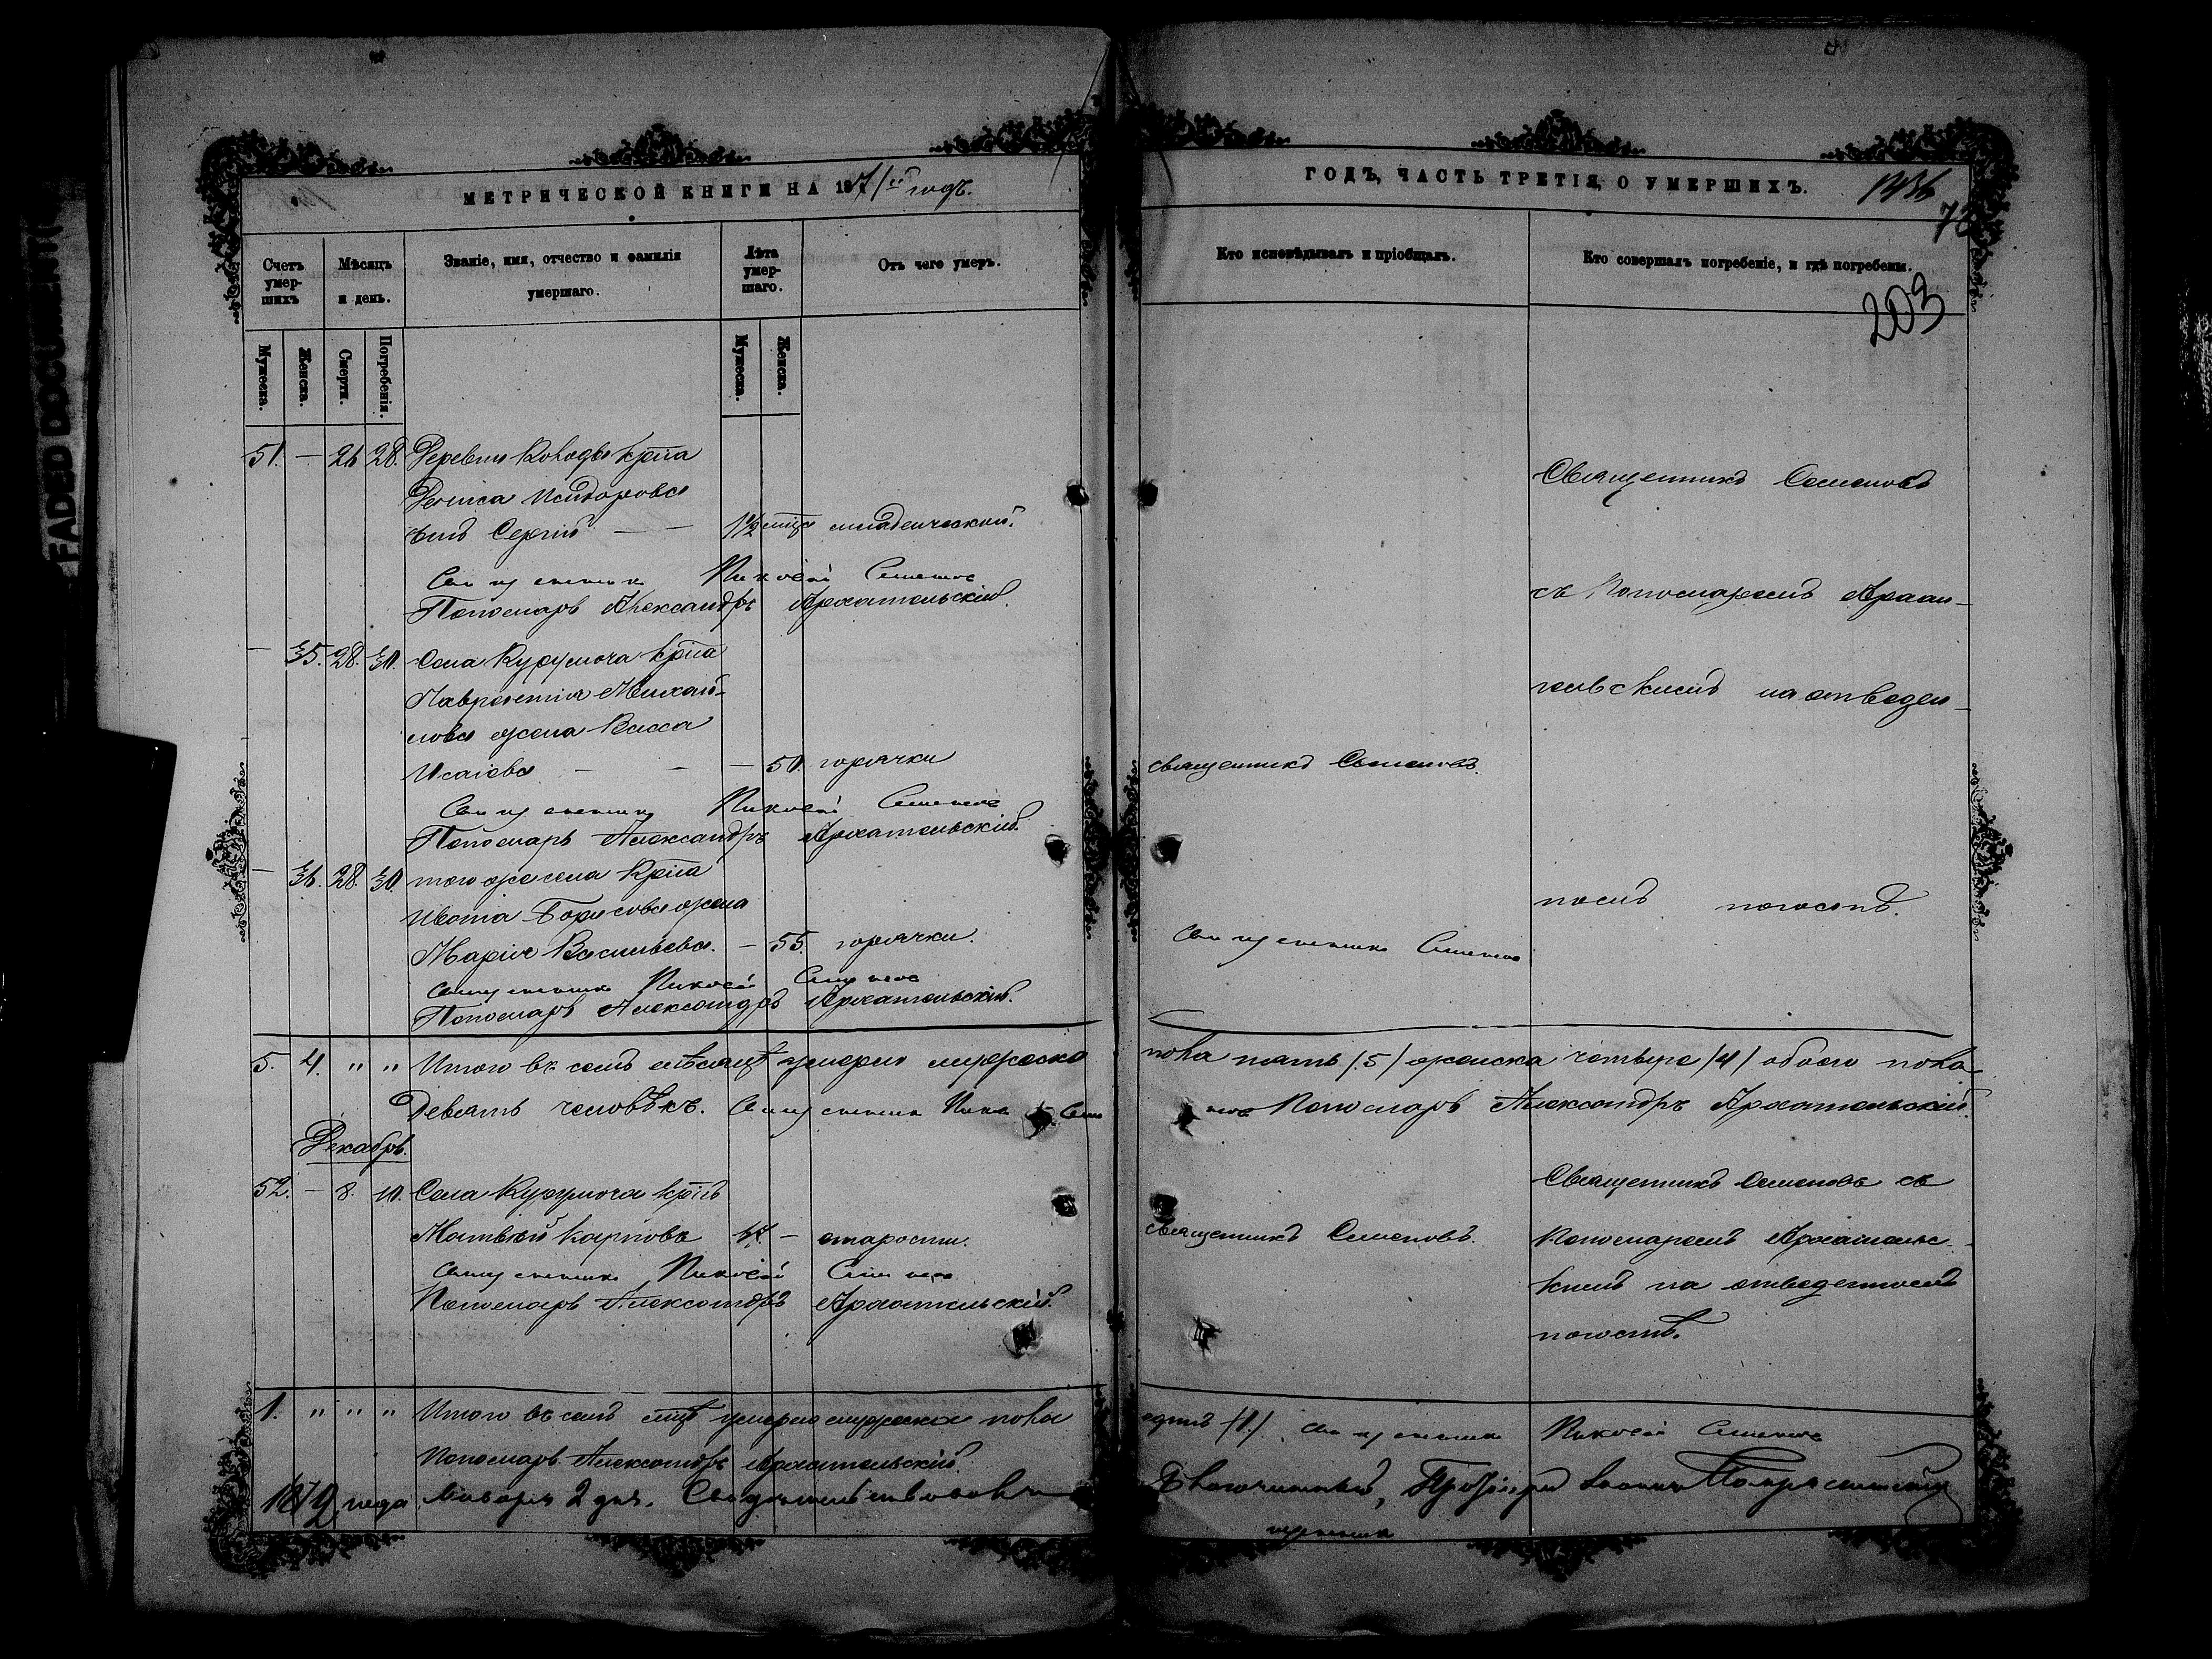 МЕТРИЧЕСКОЙ КНИГИ НА 1871й годъ.
Счетъ умер-шихъ
Мѣсяцъ и день.
Званіе, имя, отчество и фамилія умершаго.
Лѣта умер-шаго.
Отъ чего умеръ.
Мужеска.
Женска.
Смерти.
Погребенія.
Мужеска.
Женска.
51. — 26 28. Деревни крña
Дениса Исидорова
сынъ Сергій — — 1½ младенческой.
Священникъ Николай Семеновъ
Пономарь Александръ Архангельскій.
— 35. 28. 30. Села Курумоча крña
Лаврентія Михай-
лова жена Васса
Исаіева — — — 50. горячки
Священникъ Николай Семеновъ
Пономарь Александръ Архангельскій.
— 36. 28. 30. того же села крña
Ивана Борисова жена
Марія Васильева. — 55. горячки.
Священникъ Николай Семеновъ
Пономарь Александръ Архангельскій.
5. 4. " " Итого въ семъ мѣсяцѣ умерло мужеска
Девять человѣкъ. Священникъ Никол Семе
Декабрь.
52. — 8. 10. Села Курумоча крñъ
Матвѣй Карповъ — старости.
Священникъ Николай Семеновъ
Пономарь Александръ Архангельскій.
1. " " " Итого въ семъ мцѣ умерло мужеска пола
Пономарь Александръ Архангельскій.
1872 года Января 2 дня. Свидѣтельствовалъ
ГОДЪ, ЧАСТЬ ТРЕТІЯ, О УМЕРШИХЪ.
203
Кто исповѣдывалъ и пріобщалъ.
Кто совершалъ погребеніе, и гдѣ погребены.
Священникъ Семеновъ
съ Пономаремъ Архан-
гельскимъ на отведен-
священникъ Семеновъ.
номъ погостѣ.
Священникъ Семеновъ
пола пять /5/ женска четыре /4/ обоего пола
новъ Пономарь Александръ Архангельскій.
Священникъ Семеновъ съ
священникъ Семеновъ.
Пономаремъ Архангельс-
кимъ на отведенномъ
погостѣ.
одинъ /1/. Священникъ Николай Семеновъ
Благочинный, Протоіерей Іоаннъ